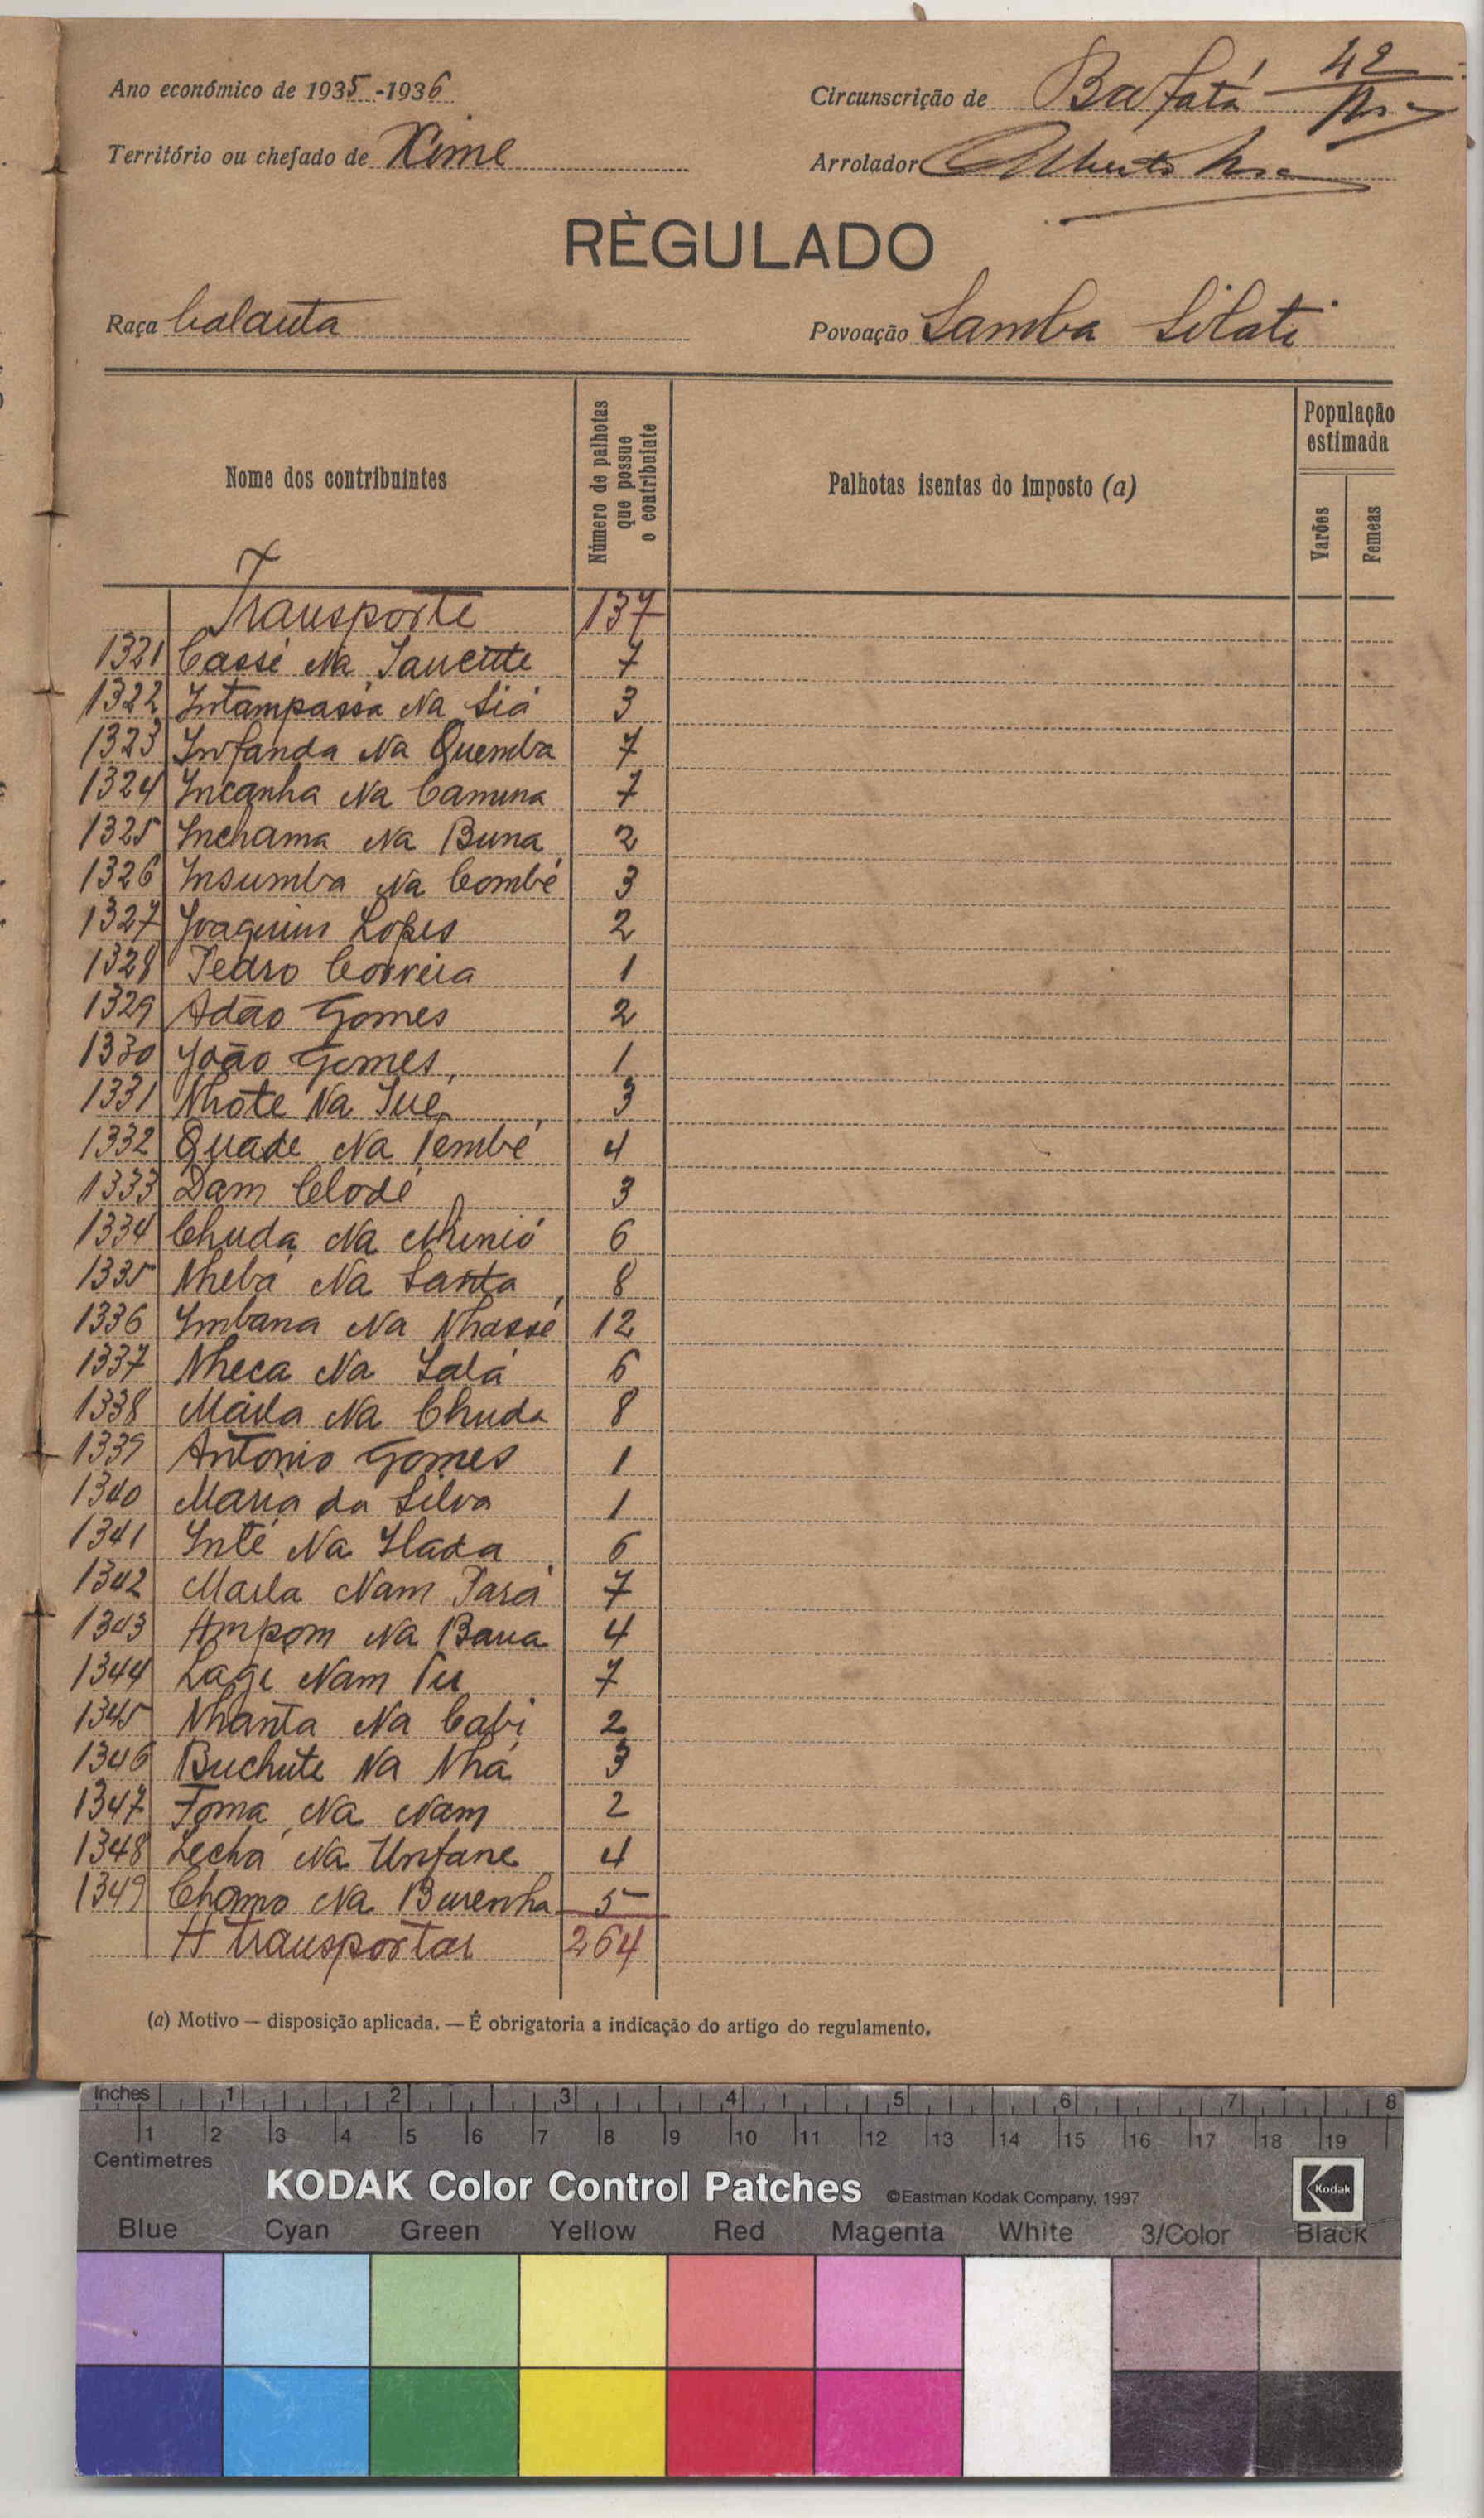 Ano económico de 1935-1936
Circunscrição de Bafatá 42
Território ou chefado de Xime
Arrolador Alberto
RÈGULADO
Raça balanta
Povoação Samba Silati
Nome dos contribuintes
Número de palhotas que possue o contribuinte
Palhotas isentas do imposto (a)
População estimada
Varões
Femeas
Transporte 137
1321 Cassé Na 7
1322 Intampassa Na Siá 3
1323 Infanda Na Quemba 7
1324 Incanha Na Camuna 7
1325 Inchama Na Buna 2
1326 Insumba Na Combé 3
1327 Joaquim Lopes 2
1328 Pedro Correia 1
1329 Adão Gomes 2
1330 João Gomes 1
1331 Nhote Na Sué 3
1332 Quade Na Tembé 4
1333 Dam Clodé 3
1334 Chuda Na 6
1335 Nhebá Na Santa 8
1336 Imbana Na Nhassé 12
1337 Nheca Na Salá 6
1338 Maila Na Chuda 8
1339 Antonio Gomes 1
1340 Maria da Silva 1
1341 Inté Na Ilada 6
1342 Maila Nam Pará 7
1343 Ampom Na Baua 4
1344 Lagi Nam Tu 7
1345 Nhanta Na Cabi 2
1346 Buchute Na Nhá 3
1347 Foma Na Nam 2
1348 Lechá Na Unfane 4
1349 Chomo Na Burenha 5
A transportar 264
(a) Motivo — disposição aplicada. — É obrigatoria a indicação do artigo do regulamento.
Inches 1 2 3 4 5 6 7 8
1 2 3 4 5 6 7 8 9 10 11 12 13 14 15 16 17 18 19
Centimetres
KODAK Color Control Patches ©Eastman Kodak Company, 1997 Kodak
Blue Cyan Green Yellow Red Magenta White 3/Color Black